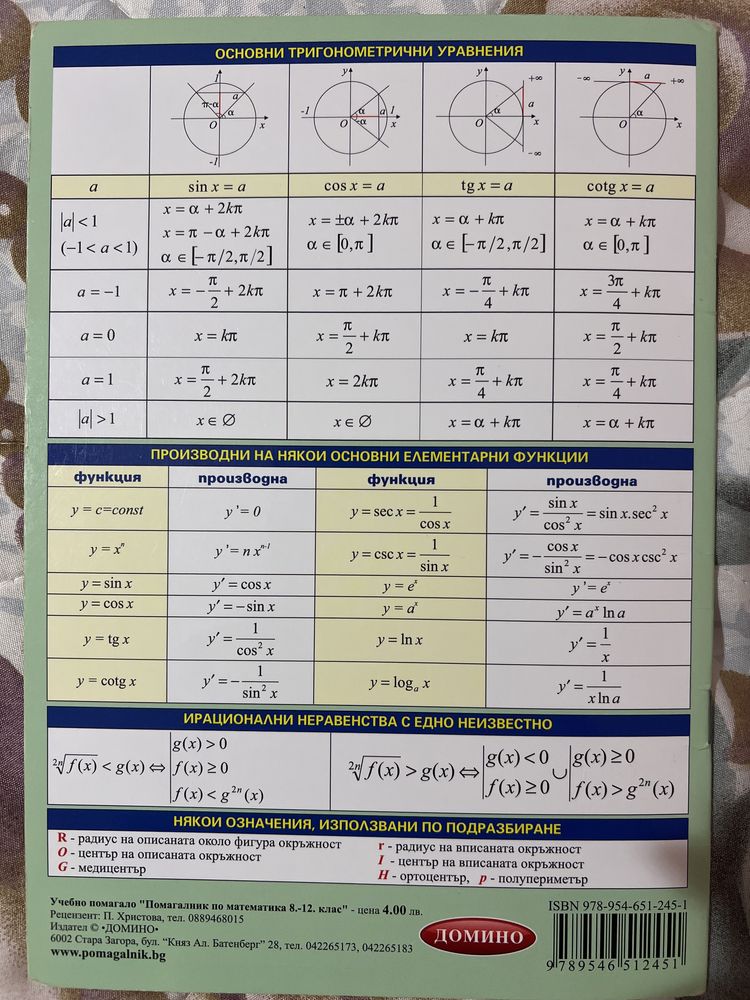 ОСНОВНИ ТРИГОНОМЕТРИЧНИ УРАВНЕНИЯ
1 π-α a α O x -1
y -1 α -α a 1 O x
y +∞ α a O x -∞
-∞ y a +∞ α O x
a sin x = a cos x = a tg x = a cotg x = a
|a| < 1 (−1 < a < 1) x = α + 2kπ x = π − α + 2kπ α ∈ [−π/2,π/2] x = ±α + 2kπ α ∈ [0,π] x = α + kπ α ∈ [−π/2,π/2] x = α + kπ α ∈ [0,π]
a = −1 x = −π/2 + 2kπ x = π + 2kπ x = −π/4 + kπ x = 3π/4 + kπ
a = 0 x = kπ x = π/2 + kπ x = kπ x = π/2 + kπ
a = 1 x = π/2 + 2kπ x = 2kπ x = π/4 + kπ x = π/4 + kπ
|a| > 1 x ∈ ∅ x ∈ ∅ x = α + kπ x = α + kπ
ПРОИЗВОДНИ НА НЯКОИ ОСНОВНИ ЕЛЕМЕНТАРНИ ФУНКЦИИ
функция производна функция производна
y = c=const y' = 0 y = sec x = 1/cos x y' = sin x/cos² x = sin x.sec² x
y = xⁿ y' = n xⁿ⁻¹ y = csc x = 1/sin x y' = −cos x/sin² x = −cos x csc² x
y = sin x y' = cos x y = eˣ y' = eˣ
y = cos x y' = −sin x y = aˣ y' = aˣ ln a
y = tg x y' = 1/cos² x y = ln x y' = 1/x
y = cotg x y' = −1/sin² x y = logₐ x y' = 1/x ln a
ИРАЦИОНАЛНИ НЕРАВЕНСТВА С ЕДНО НЕИЗВЕСТНО
²ⁿ√f(x) < g(x) ⇔ | g(x) > 0 | f(x) ≥ 0 | f(x) < g²ⁿ(x)
²ⁿ√f(x) > g(x) ⇔ | g(x) < 0 | f(x) ≥ 0 ∪ | g(x) ≥ 0 | f(x) > g²ⁿ(x)
НЯКОИ ОЗНАЧЕНИЯ, ИЗПОЛЗВАНИ ПО ПОДРАЗБИРАНЕ
R - радиус на описаната около фигура окръжност
O - център на описаната окръжност
G - медицентър
r - радиус на вписаната окръжност
I - център на вписаната окръжност
H - ортоцентър, p - полупериметър
Учебно помагало "Помагалник по математика 8.-12. клас" - цена 4.00 лв.
Рецензент: П. Христова, тел. 0889468015
Издател © •ДОМИНО•
6002 Стара Загора, бул. “Княз Ал. Батенберг” 28, тел. 042265173, 042265183
www.pomagalnik.bg
ДОМИНО
ISBN 978-954-651-245-1
9 789546 512451